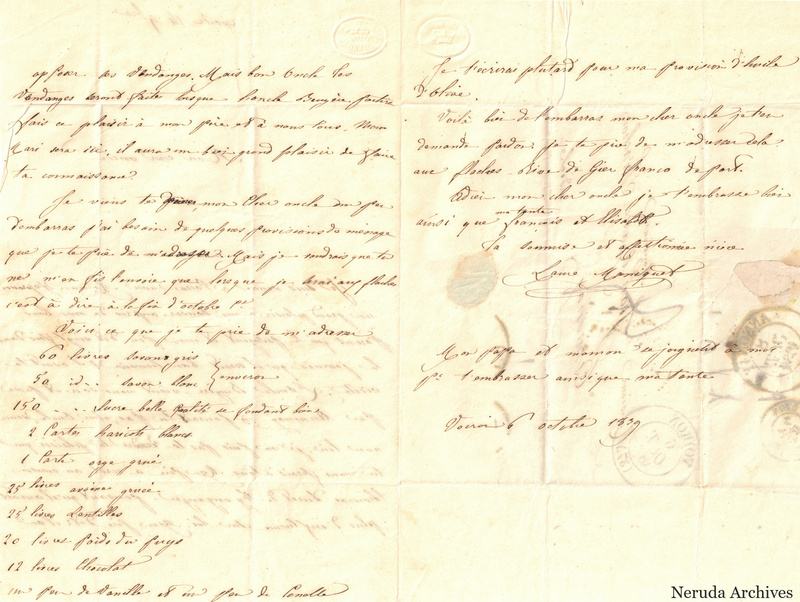 oposer aux vendanges. Mais bon oncle les
vendanges seront faites lorsque l'oncle Bruyère partira
fais ce plaisir à mon père et à nous tous. Mon
mari sera ici, il aura un bien grand plaisir de faire
ta connaissance.
Je viens te mon cher oncle un peu
d'embarras j'ai besoin de quelques provisions de ménage
que je te prie de m'adresser. Mais je voudrais que tu
ne m'en fis l'envoie que lorsque je serai aux flaches
c'est à dire à la fin d'octobre
Voici ce que je te prie de m'adresser
60 livres savon gris
50 id.. savon blanc } environ
150 .. sucre belle qualité se fondant bien
2 Cartes haricots blancs
1 Carte orge grué
25 livres avoine grué
25 livres Lentilles
20 livres poids du puys
12 livres Chocolat
un peu de Vanille et un peu de Canelle
Je t'écrirai plutard pour ma provision d'huile
d'Olive.
Voilà bien de l'embarras mon cher oncle je t'en
demande pardon, je te prie de m'adresser cela
aux flaches - Rive de Gier franco de port.
Adieu mon cher oncle je t'embrasse bien
ainsi que ma tante françois et Elisabeth.
Ta soumise et affectionnée nièce
Laure
Mon papa et maman se joignent à moi
pr t'embrasser ainsi que ma tante
Voiron 6 octobre 1839
Neruda Archives